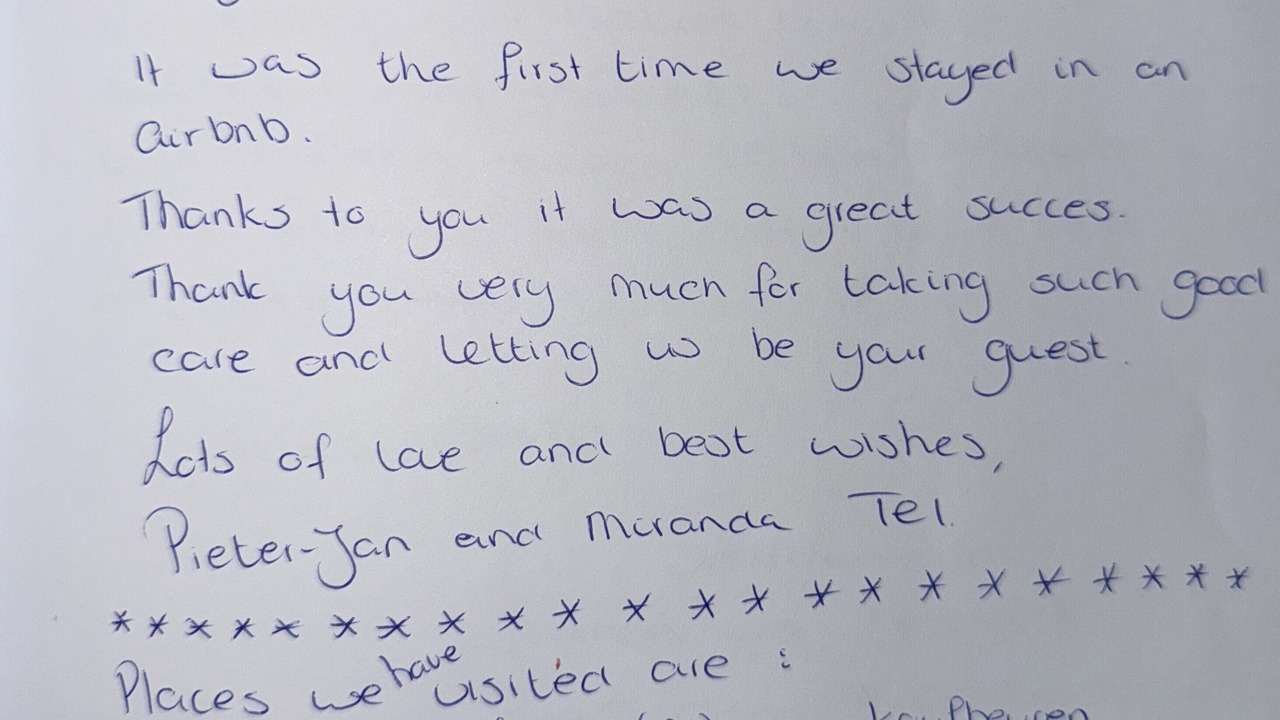 It was the first time we stayed in an
airbnb.
Thanks to you it was a great succes.
Thank you very much for taking such good
care and letting us be your guest.
Lots of love and best wishes,
Pieter-Jan and Miranda Tel.
* * * * * * * * * * * * * * * * * * * * * *
Places we have visited are :